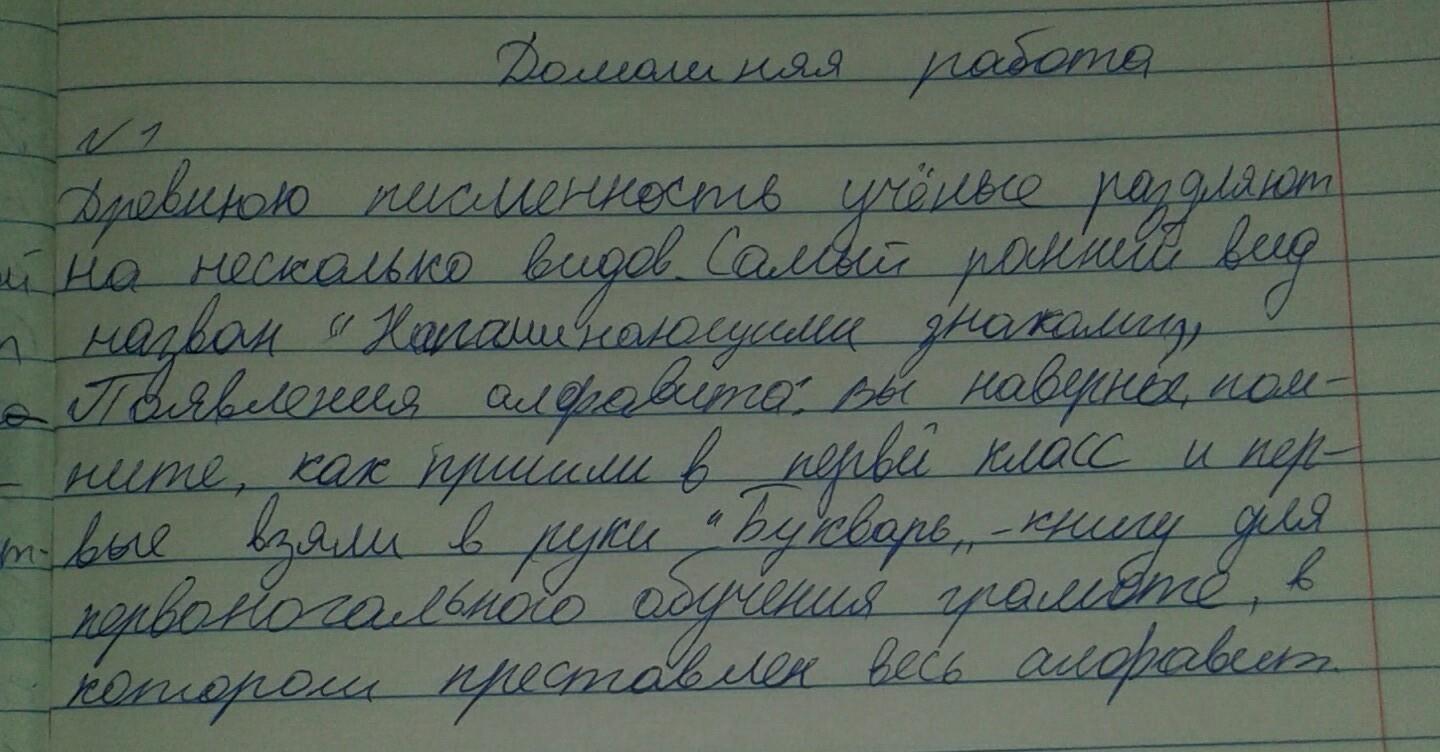 Домашняя работа
№1
Древнюю писменность учёные раздляют
на несколько видов. Самый ранний вид
назван "Напаминающими знаками„
Паявления алфавита: вы наверное, пом-
ните, как пришли в первй класс и пер-
вые взяли в руки "Букварь„ - книгу для
первоночального обучения грамоте, в
котором преставлен весь алфавит